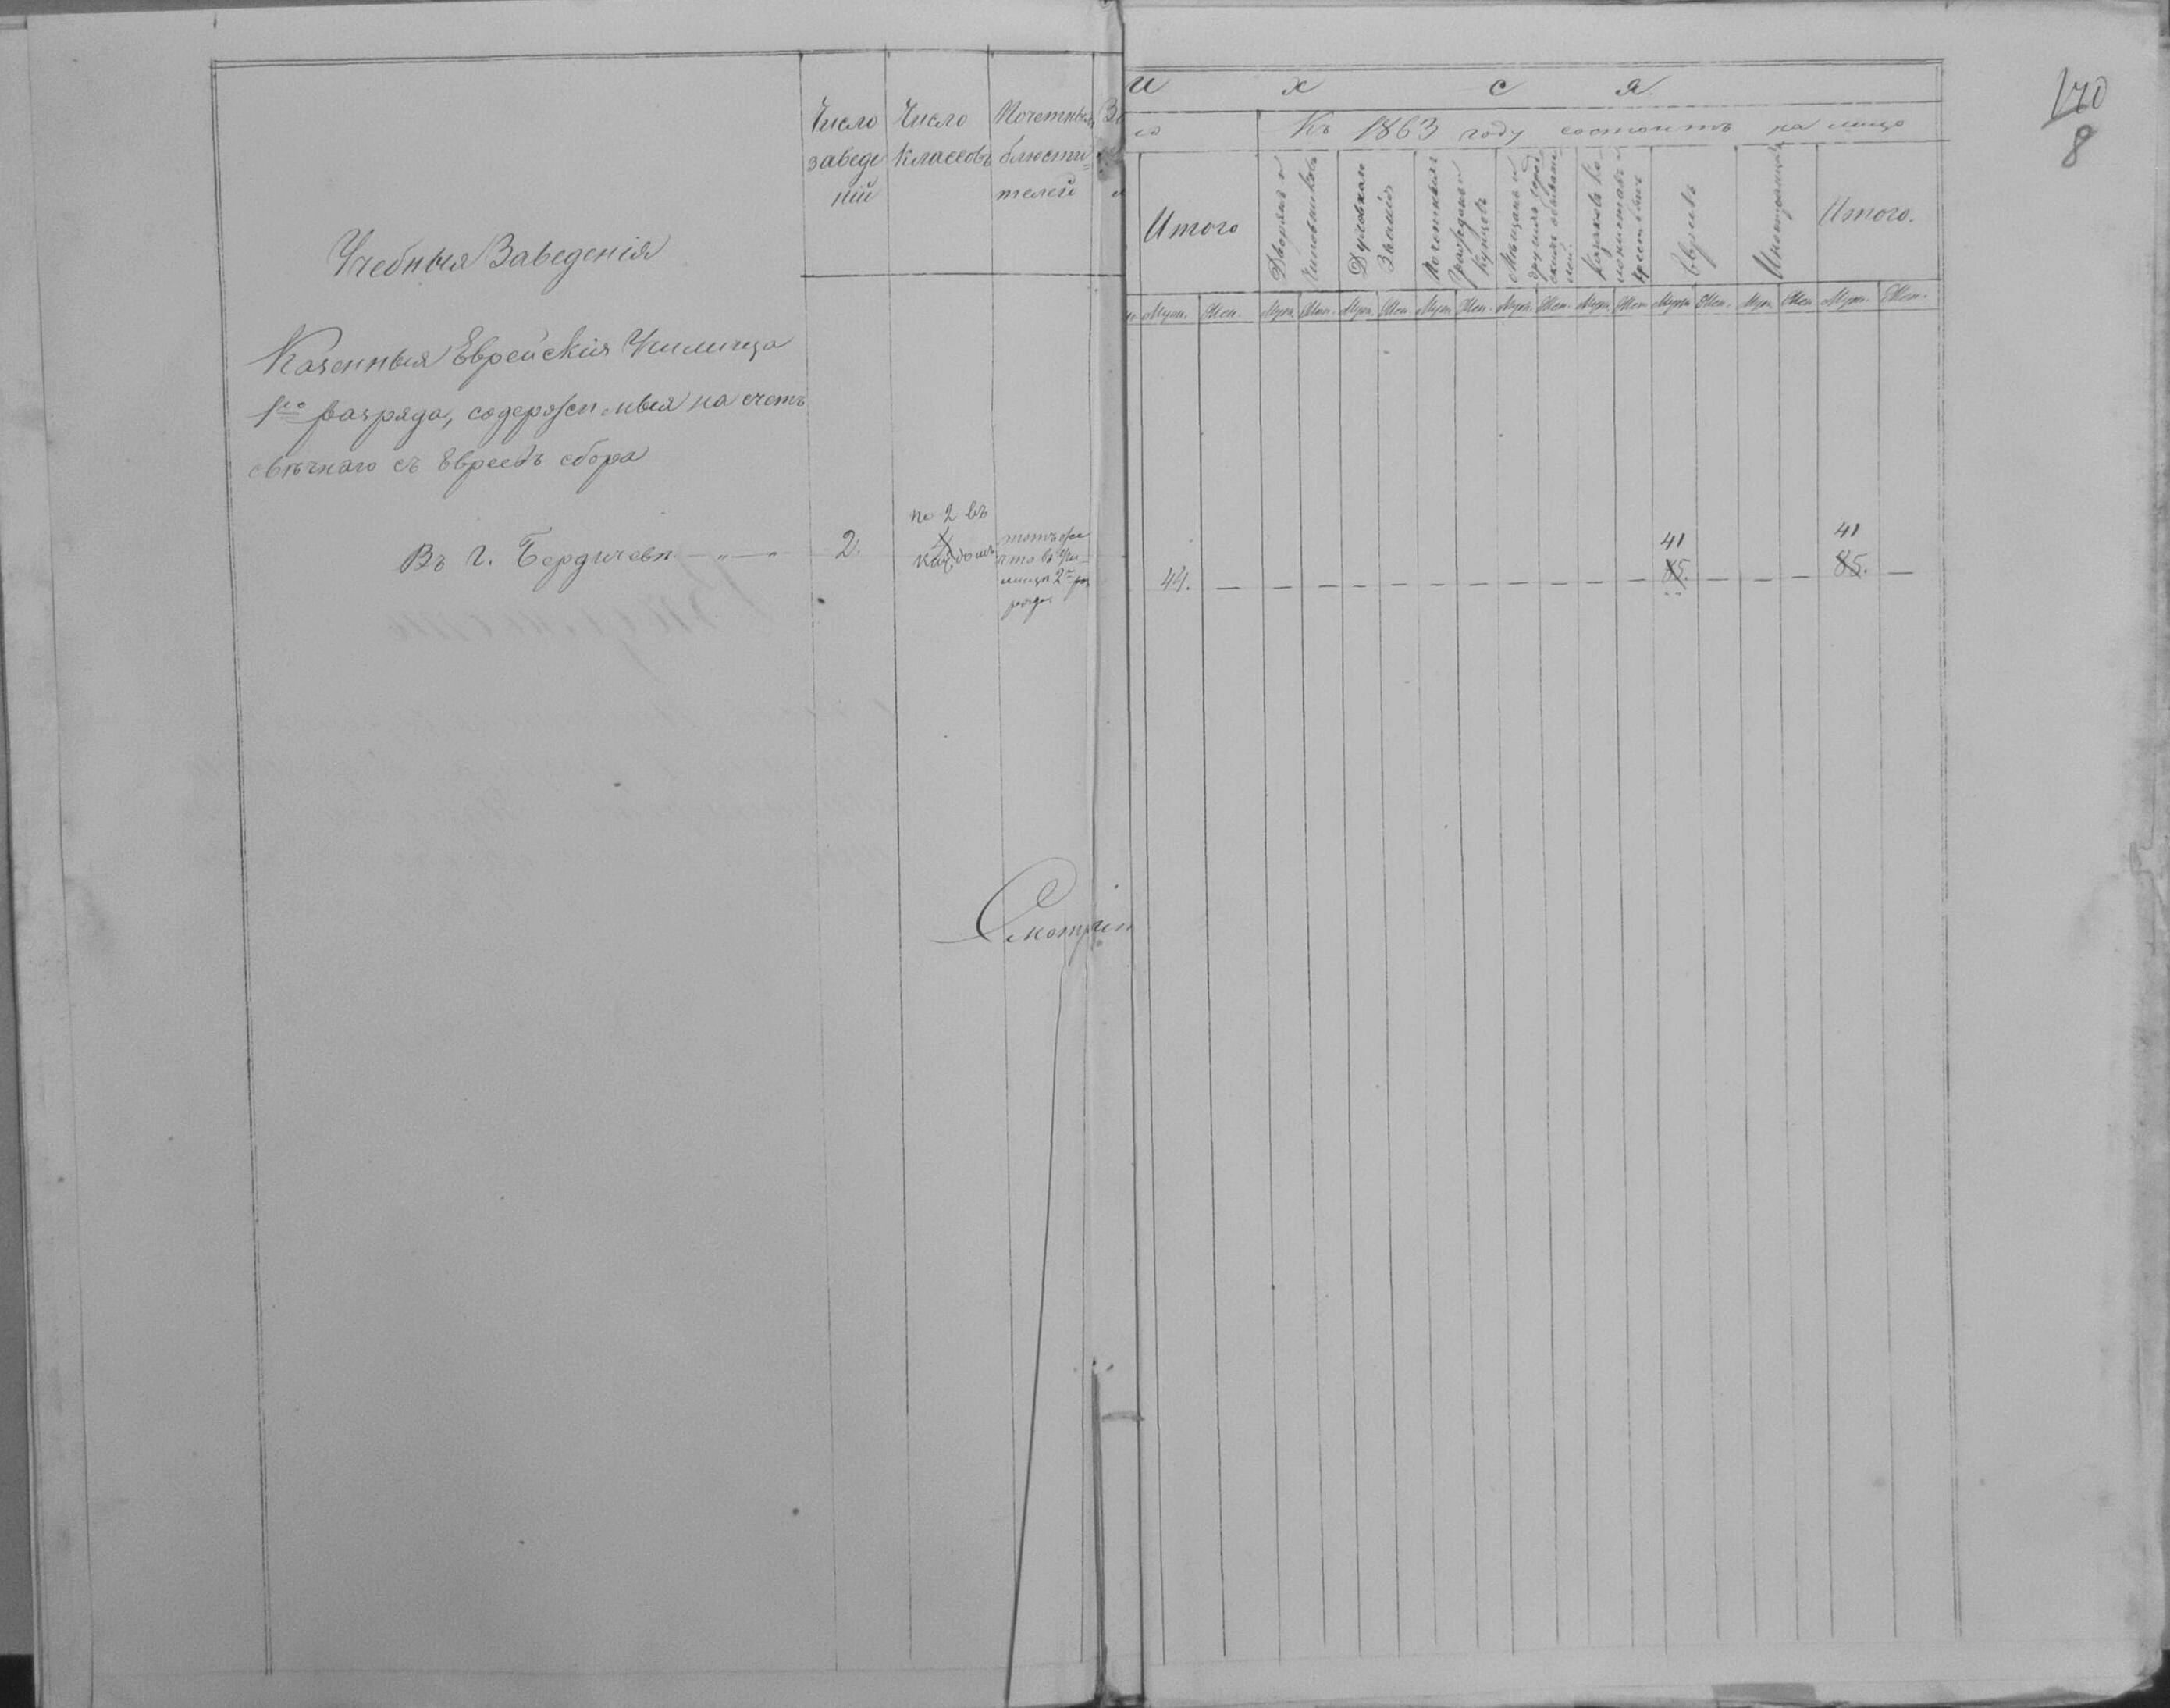 Учебныя Заведенія
Число
заведе
ній
Число
Классовъ
Почетныхъ
блюсти=
телей
Казенныя Еврейскія Училища
1го разряда, содержимыя на счетъ
свѣчнаго съ Евреевъ сбора
Въ г. Бердичевѣ — „ — 2.
по 2 въ
4
каждомъ
тотъ же
что въ Учи-
лищѣ 2го раз
ряда
Смотрит
170
8
и х с я
Къ 1863 году состоитъ на лицо
Итого
Дворянъ и
Чиновниковъ
Духовнаго
Званія
Почетныхъ
Гражданъ и
Купцовъ
Мѣщанъ и
другихъ город
скихъ обывате-
лей
Казаковъ ко-
лонистовъ и
крестьянъ
Евреевъ
Иностранцевъ
Итого.
Муж. Жен. Муж. Жен. Муж. Жен. Муж. Жен. Муж. Жен. Муж. Жен. Муж. Жен. Муж. Жен. Муж. Жен.
41 41
44. — — — — — — — — — — — 85. — — — 85. —